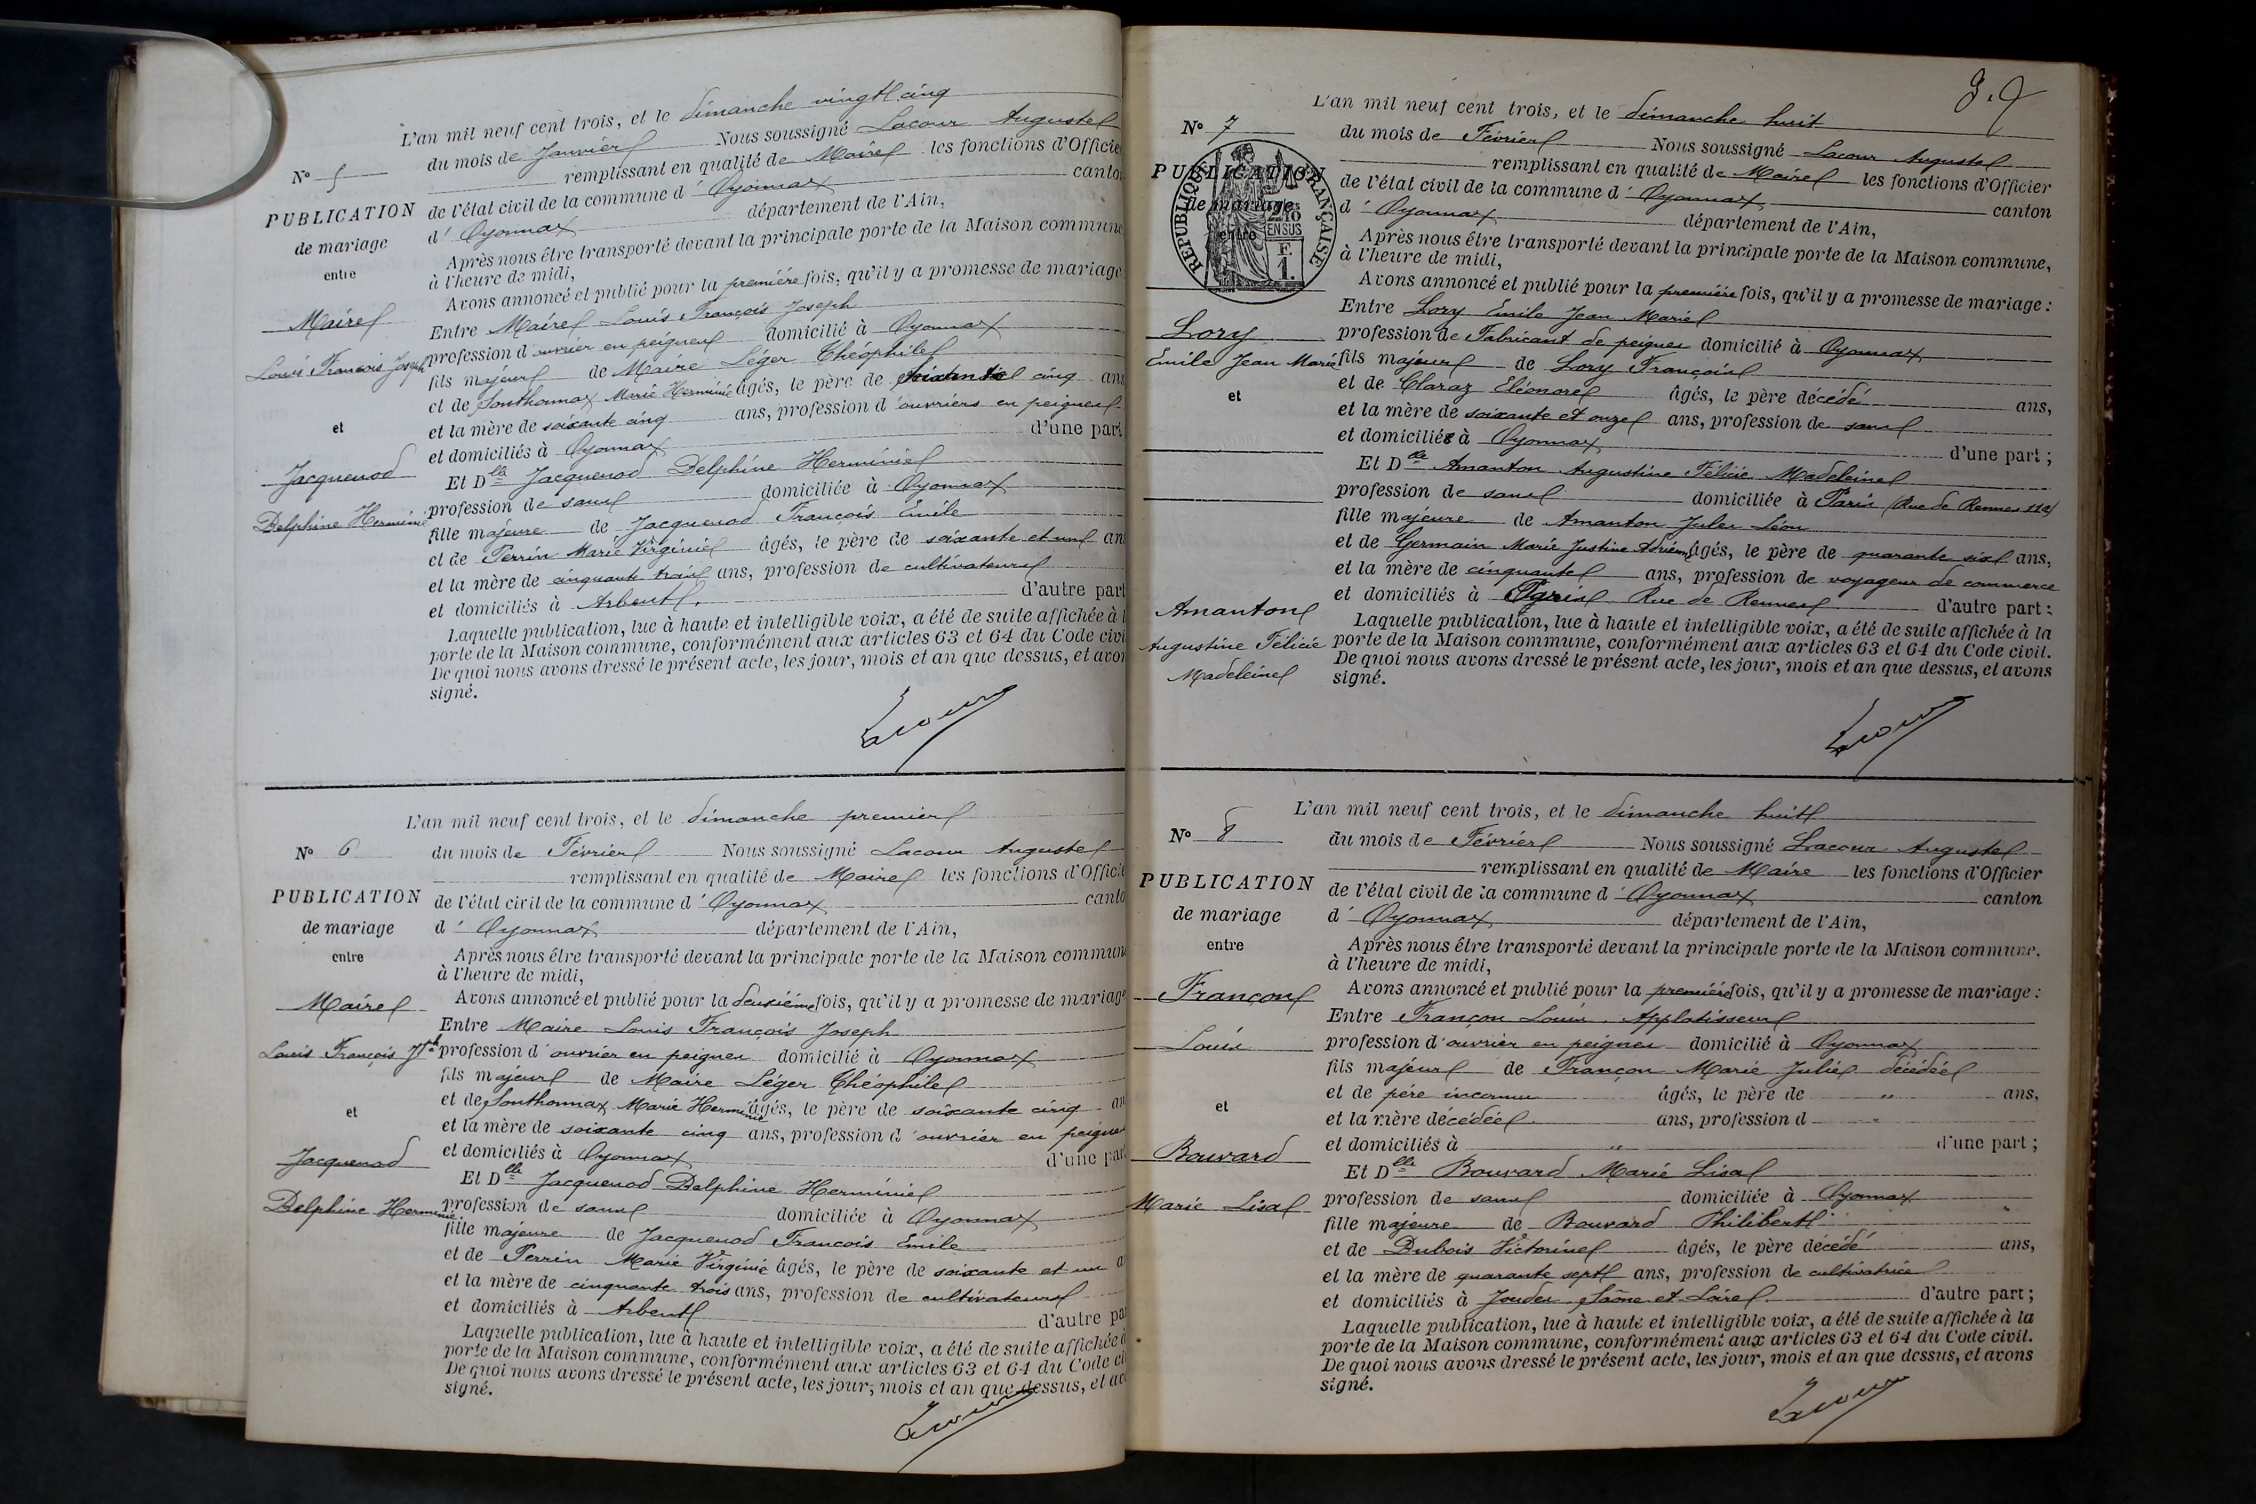 L'an mil neuf cent trois, et le dimanche vingt cinq
du mois de Janvier Nous soussigné Lacour Auguste
remplissant en qualité de Maire les fonctions d'Officie
de l'état civil de la commune d' Oyonnax canto
d' Oyonnax département de l'Ain,
Après nous être transporté devant la principale porte de la Maison commune
à l'heure de midi,
Avons annoncé et publié pour la première fois, qu'il y a promesse de mariage
Entre Maire Louis François Joseph
profession d'ouvrier en peignes domicilié à Oyonnax
fils majeur de Maire Léger Théophile
et de Sonthonnax Marie Herminie âgés, le père de soixante cinq ans
et la mère de soixante cinq ans, profession d'ouvriers en peignes
et domiciliés à Oyonnax d'une part
Et Dlle Jacquenod Delphine Herminie
profession de sans domiciliée à Oyonnax
fille majeure de Jacquenod François Emile
et de Perrin Marie Virginie âgés, le père de soixante et un an
et la mère de cinquante trois ans, profession de cultivateurs
et domiciliés à Arbent. d'autre part
Laquelle publication, lue à haute et intelligible voix, a été de suite affichée à l
porte de la Maison commune, conformément aux articles 63 et 64 du Code civi
De quoi nous avons dressé le présent acte, les jour, mois et an que dessus, et avon
signé.
Lacour
N° 5
PUBLICATION
de mariage
entre
Maire
Louis François Joseph
et
Jacquenod
Delphine Herminie
L'an mil neuf cent trois, et le dimanche premier
du mois de Février Nous soussigné Lacour Auguste
remplissant en qualité de Maire les fonctions d'Officie
de l'état civil de la commune d' Oyonnax canto
d' Oyonnax département de l'Ain,
Après nous être transporté devant la principale porte de la Maison commun
à l'heure de midi,
Avons annoncé et publié pour la deuxième fois, qu'il y a promesse de mariag
Entre Maire Louis François Joseph
profession d'ouvrier en peignes domicilié à Oyonnax
fils majeur de Maire Léger Théophile
et de Sonthonnax Marie Herminie âgés, le père de soixante cinq an
et la mère de soixante cinq ans, profession d'ouvrier en peignes
et domiciliés à Oyonnax d'une par
Et Dlle Jacquenod Delphine Herminie
profession de sans domiciliée à Oyonnax
fille majeure de Jacquenod François Emile
et de Perrin Marie Virginie âgés, le père de soixante et un a
et la mère de cinquante trois ans, profession de cultivateurs
et domiciliés à Arbent d'autre pa
Laquelle publication, lue à haute et intelligible voix, a été de suite affichée à
porte de la Maison commune, conformément aux articles 63 et 64 du Code ci
De quoi nous avons dressé le présent acte, les jour, mois et an que dessus, et av
signé.
Lacour
N° 6
PUBLICATION
de mariage
entre
Maire
Louis François Jph
et
Jacquenod
Delphine Herminie
L'an mil neuf cent trois, et le dimanche huit
du mois de Février Nous soussigné Lacour Auguste
remplissant en qualité de Maire les fonctions d'Officier
de l'état civil de la commune d' Oyonnax canton
d' Oyonnax département de l'Ain,
Après nous être transporté devant la principale porte de la Maison commune,
à l'heure de midi,
Avons annoncé et publié pour la première fois, qu'il y a promesse de mariage :
Entre Lory Emile Jean Marie
profession de Fabricant de peignes domicilié à Oyonnax
fils majeur de Lory François
et de Claraz Eléonore âgés, le père décédé ans,
et la mère de soixante et onze ans, profession de sans
et domiciliés à Oyonnax d'une part ;
Et Dlle Amanton Augustine Félicie Madeleine
profession de sans domiciliée à Paris (Rue de Rennes 112)
fille majeure de Amanton Jules Léon
et de Germain Marie Justine Adrienne âgés, le père de quarante six ans,
et la mère de cinquante ans, profession de voyageur de commerce
et domiciliés à Paris Rue de Rennes d'autre part ;
Laquelle publication, lue à haute et intelligible voix, a été de suite affichée à la
porte de la Maison commune, conformément aux articles 63 et 64 du Code civil.
De quoi nous avons dressé le présent acte, les jour, mois et an que dessus, et avons
signé.
Lacour
N° 7
PUBLICATION
de mariage
entre
RÉPUBLIQUE FRANÇAISE
EN SUS
F.
1.
Lory
Emile Jean Marie
et
Amanton
Augustine Félicie
Madeleine
L'an mil neuf cent trois, et le dimanche huit
du mois de Février Nous soussigné Lacour Auguste
remplissant en qualité de Maire les fonctions d'Officier
de l'état civil de la commune d' Oyonnax canton
d' Oyonnax département de l'Ain,
Après nous être transporté devant la principale porte de la Maison commune.
à l'heure de midi,
Avons annoncé et publié pour la première fois, qu'il y a promesse de mariage :
Entre Françon Louis. Applatisseur
profession d'ouvrier en peignes domicilié à Oyonnax
fils majeur de Françon Marie Julie décédée
et de père inconnu âgés, le père de " ans,
et la mère décédée ans, profession d "
et domiciliés à " d'une part ;
Et Dlle Bouvard Marie Lisa
profession de sans domiciliée à Oyonnax
fille majeure de Bouvard Philibert
et de Dubois Victorine âgés, le père décédé ans,
et la mère de quarante sept ans, profession de cultivatrice
et domiciliés à Joudes Saône et Loire. d'autre part ;
Laquelle publication, lue à haute et intelligible voix, a été de suite affichée à la
porte de la Maison commune, conformément aux articles 63 et 64 du Code civil.
De quoi nous avons dressé le présent acte, les jour, mois et an que dessus, et avons
signé.
Lacour
N° 8
PUBLICATION
de mariage
entre
Françon
Louis
et
Bouvard
Marie Lisa